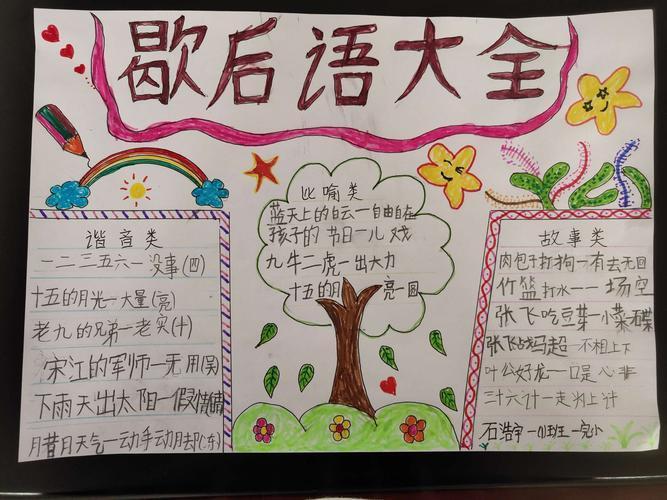 歇后语大全
谐音类
一二三五六一没事(四)
十五的月光一大量(亮)
老九的兄弟一老实(十)
宋江的军师一无用(吴)
下雨天出太阳一假情(晴)
月昔月天气一动手动月却(冻)
比喻类
蓝天上的白云一自由自在
孩子的节日一儿戏
九牛二虎一出大力
十五的月亮一圆
故事类
肉包子打狗一有去无回
竹篮打水一一场空
张飞吃豆芽一小菜一碟
张飞战马超 不相上下
叶公好龙一口是心非
三十六计一走为上计
石浩宇一(1)班一完小